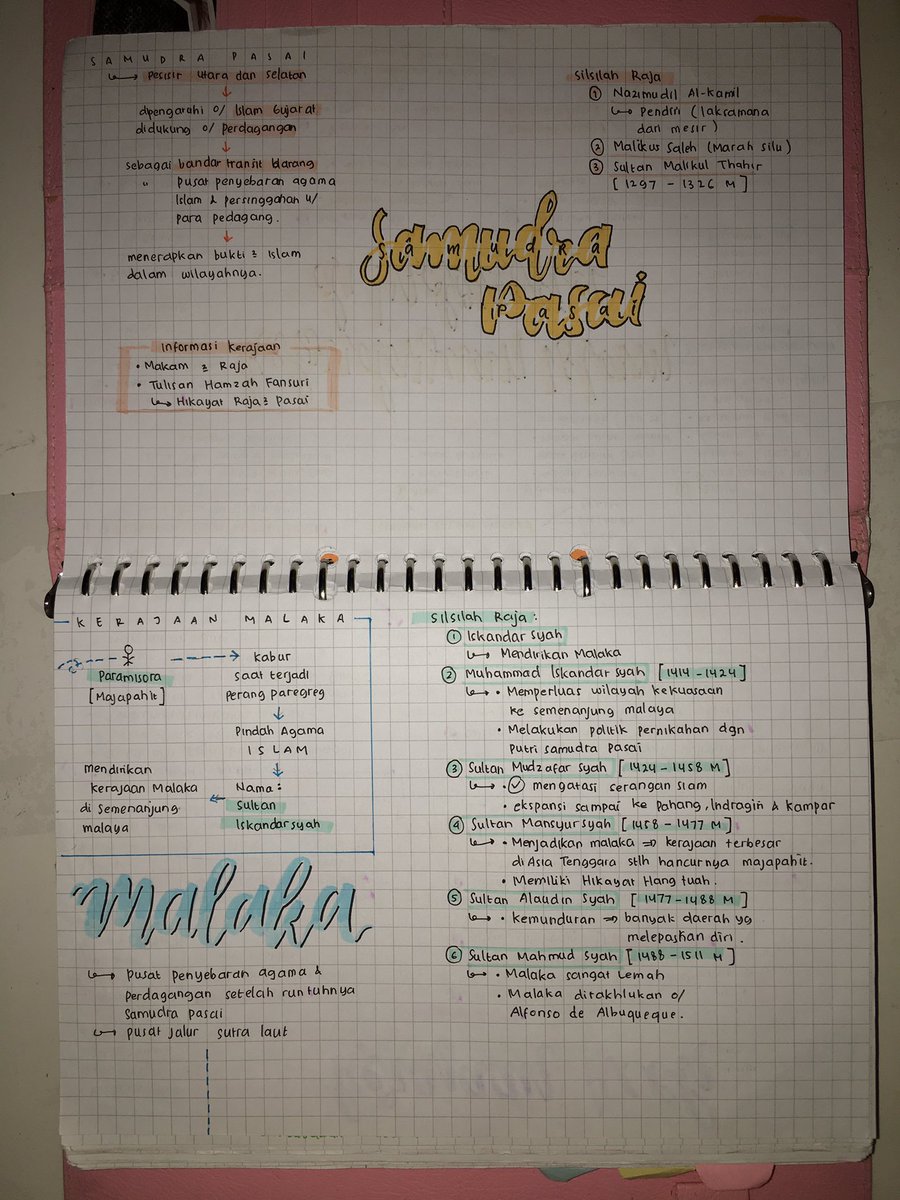 SAMUDRA PASAI
↳ pesisir utara dan selatan
↓
dipengarahi o/ Islam Gujarat
didukung o/ Perdagangan
↓
sebagai bandar transit barang
" pusat penyebaran agama
Islam & persinggahan u/
para pedagang.
↓
menerapkan bukti² Islam
dalam wilayahnya.
Informasi Kerajaan
• Makam ² Raja
• Tulisan Hamzah Fansuri
↳ Hikayat Raja² Pasai
Silsilah Raja
① Nazimudil Al-Kamil
↳ Pendiri (laksamana
dari mesir)
② Malikus Saleh (Marah silu)
③ Sultan Malikul Thahir
[1297 - 1326 M]
Samudra
samudra
Pasai
pasai
KERAJAAN MALAKA
Paramisora
[Majapahit]
→ kabur
saat terjadi
perang paregreg
↓
Pindah Agama
ISLAM
↓
Nama:
Sultan
Iskandarsyah
←
mendirikan
kerajaan Malaka
di Semenanjung
malaya
Malaka
↳ pusat penyebaran agama &
Perdagangan setelah runtuhnya
Samudra pasai
↳ pusat jalur sutra laut
Silsilah Raja:
① Iskandar syah
↳ Mendirikan Malaka
② Muhammad Iskandar syah [1414 - 1424]
↳ • Memperluas wilayah kekuasaan
ke semenanjung malaya
• Melakukan politik pernikahan dgn
putri samudra pasai
③ Sultan Mudzafar syah [1424 - 1458 M]
↳ • ✓ mengatasi serangan siam
• ekspansi sampai ke Pahang, Indragiri & Kampar
④ Sultan Mansyur syah [1458 - 1477 M]
↳ • Menjadikan malaka ⇒ kerajaan terbesar
di Asia Tenggara stlh hancurnya majapahit.
• Memiliki Hikayat Hang tuah.
⑤ Sultan Alaudin Syah [1477 - 1488 M]
↳ • kemunduran ⇒ banyak daerah yg
melepaskan diri.
⑥ Sultan Mahmud Syah [1488 - 1511 M]
↳ • Malaka sangat Lemah
• Malaka ditakhlukan o/
Alfonso de Albuqueque.